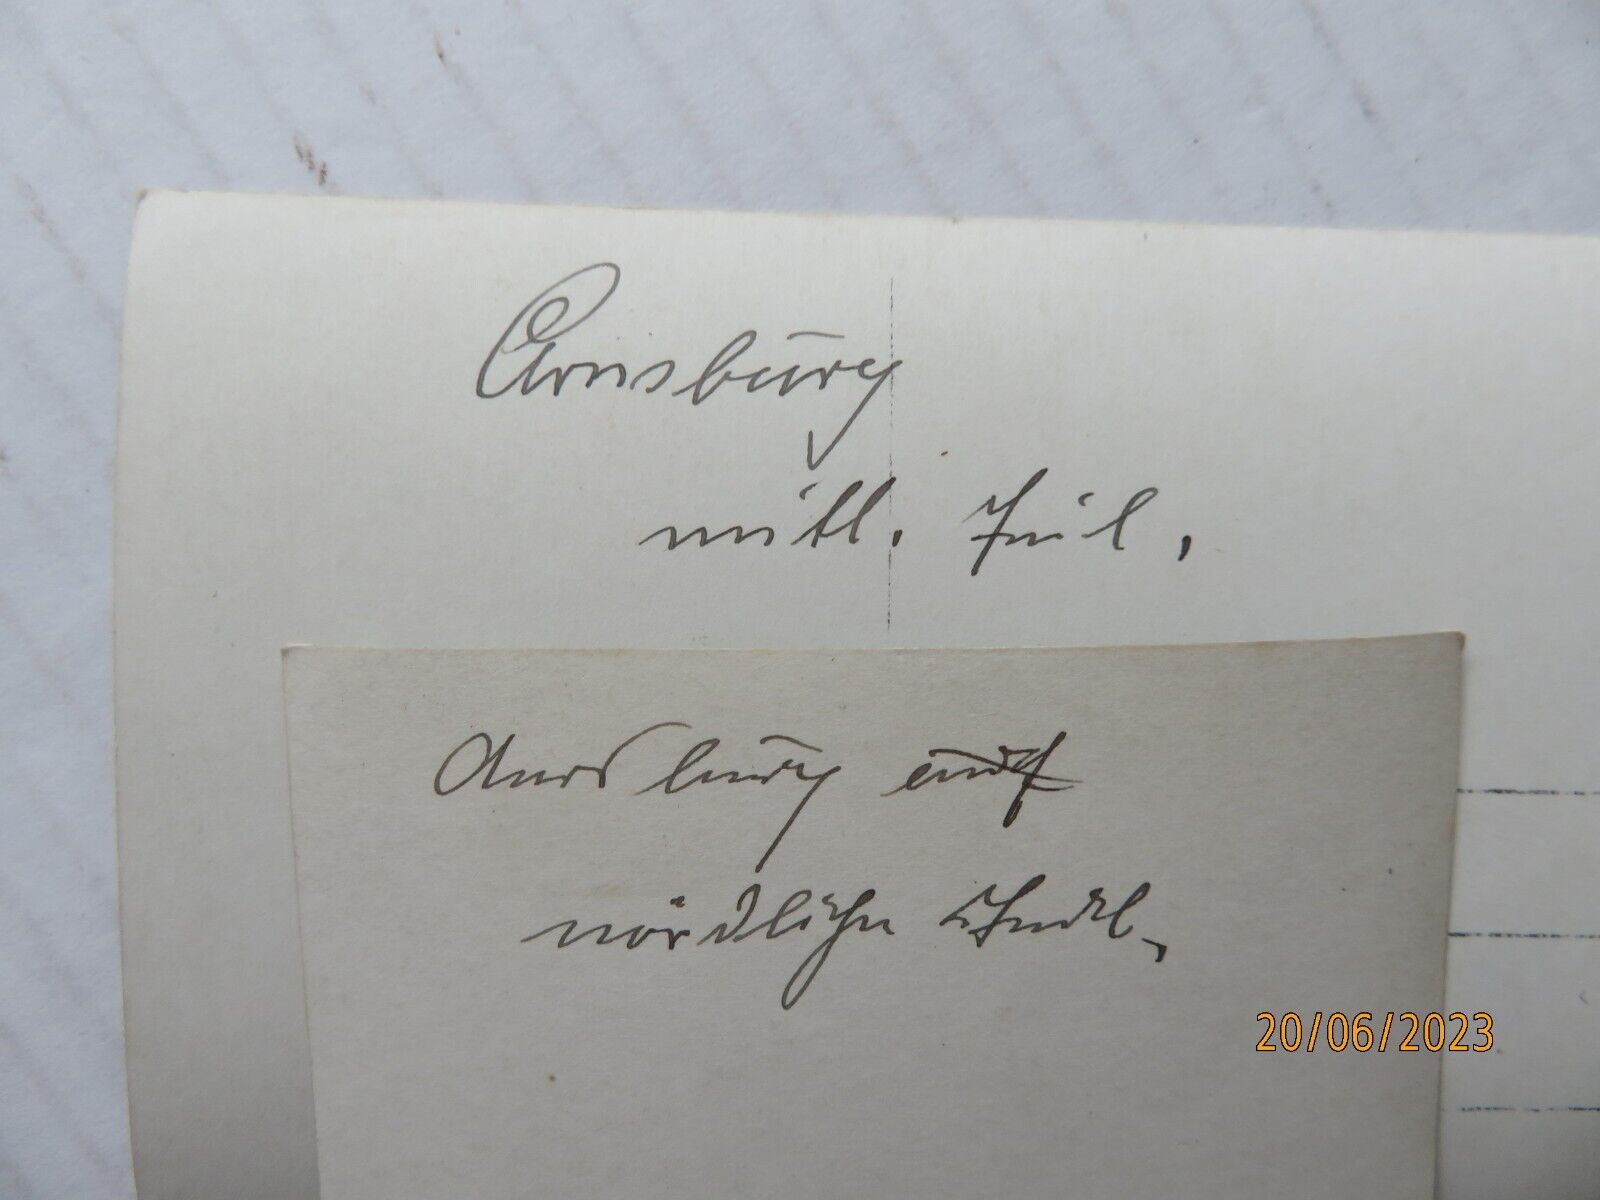 Arnsburg
mittl. Teil,
Arnsburg
nördlicher Teil,
20/06/2023